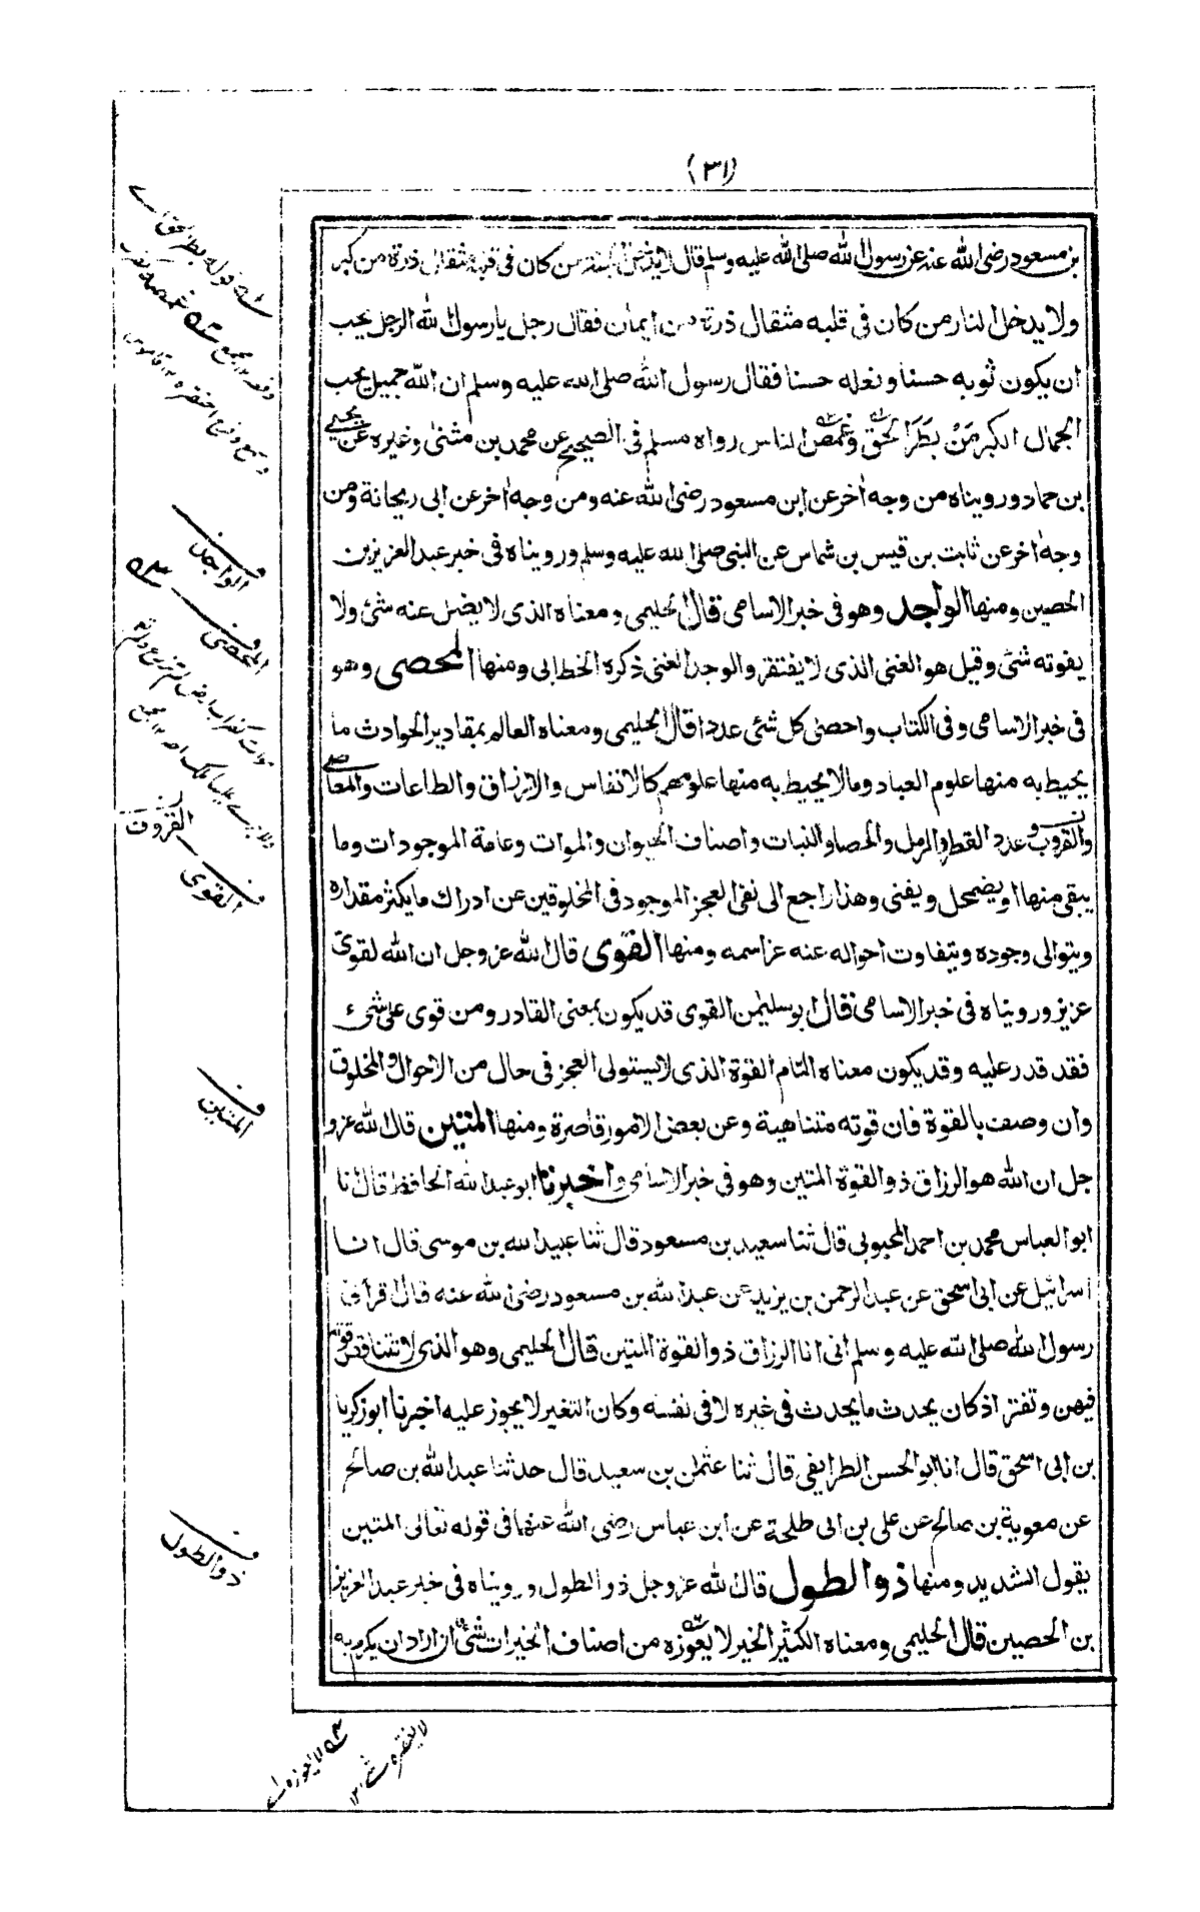 (٣١)
بن مسعود رضی الله عنه عن رسول الله صلى الله عليه وسلم قال لا يدخل الجنة من كان فى قلبه مثقال ذرة من كبر
ولا يدخل النار من كان فى قلبه مثقال ذرة من ايمان فقال رجل يا رسول الله الرجل يحب
ان يكون ثوبه حسنا ونعله حسنا فقال رسول الله صلى الله عليه وسلم ان الله جميل يحب
الجمال الكبر مَنْ بَطَرَ الحق وغمص الناس رواه مسلم فى الصحيح عن محمد بن مثنى وغيره عن يحيى
بن حماد ورويناه من وجه اخر عن ابن مسعود رضى الله عنه ومن وجه اخر عن ابى ريحانة ومن
وجه اخر عن ثابت بن قيس بن شماس عن النبى صلى الله عليه وسلم ورويناه فى خبر عبد العزيز بن
الحصين ومنها الواجد وهو فى خبر الاسامى قال الحليمى ومعناه الذى لا يضل عنه شئ ولا
يفوته شئ وقيل هو الغنى الذى لا يفتقر والوجد الغنى ذكره الخطابى ومنها المحصى وهو
فى خبر الاسامى وفى الكتاب واحصى كل شئ عددا قال الحليمى ومعناه العالم بمقادير الحوادث ما
يحيط به منها علوم العباد وما لا يحيط به منها علومهم كالانفاس والارزاق والطاعات والمعاصى
والقروب وعدد القطر والرمل والحصا والنبات واصناف الحيوان والموات وعامة الموجودات وما
يبقى منها او يضمحل ويفنى وهذا راجع الى نفى العجز الموجود فى المخلوقين عن ادراك ما يكثر مقداره
ويتوالى وجوده ويتفاوت احواله عنه عز اسمه ومنها القوى قال الله عز وجل ان الله لقوى
عزيز ورويناه فى خبر الاسامى فقال ابو سليمن القوى قد يكون بمعنى القادر ومن قوى على شئ
فقد قدر عليه وقد يكون معناه التام القوة الذى لا يستولى العجز فى حال من الاحوال والمخلوق
وان وصف بالقوة فان قوته متناهية وعن بعض الامور قاصرة ومنها المتين قال الله عز و
جل ان الله هو الرزاق ذو القوة المتين وهو فى خبر الاسامى واخبرنا ابو عبد الله الحافظ قال انا
ابو العباس محمد بن احمد المحبوبى قال ثنا سعيد بن مسعود قال ثنا عبيد الله بن موسى قال انا
اسرائيل عن ابى اسحق عن عبد الرحمن بن يزيد عن عبد الله بن مسعود رضى الله عنه قال اقرأنى
رسول الله صلى الله عليه وسلم انى انا الرزاق ذو القوة المتين قال الحليمى وهو الذى لا تتناقص قوته
فيهن وتفتر اذ كان يحدث ما يحدث فى غيره لا فى نفسه وكان التغير لا يجوز عليه اخبرنا ابو زكريا
بن ابى اسحق قال انا ابو الحسن الطرايفى قال ثنا عثمن بن سعيد قال حدثنا عبد الله بن صالح
عن معوية بن صالح عن على بن ابى طلحة عن ابن عباس رضى الله عنهما فى قوله تعالى المتين
يقول الشديد ومنها ذو الطول قال الله عز وجل ذو الطول ورويناه فى خبر عبد العزيز
بن الحصين قال الحليمى ومعناه الكثير الخير لا يعوزه من اصناف الخيرات شئ ان اراد ان يكرم به
الواجد
المحصى
القروب
القوى
المتين
ذو الطول